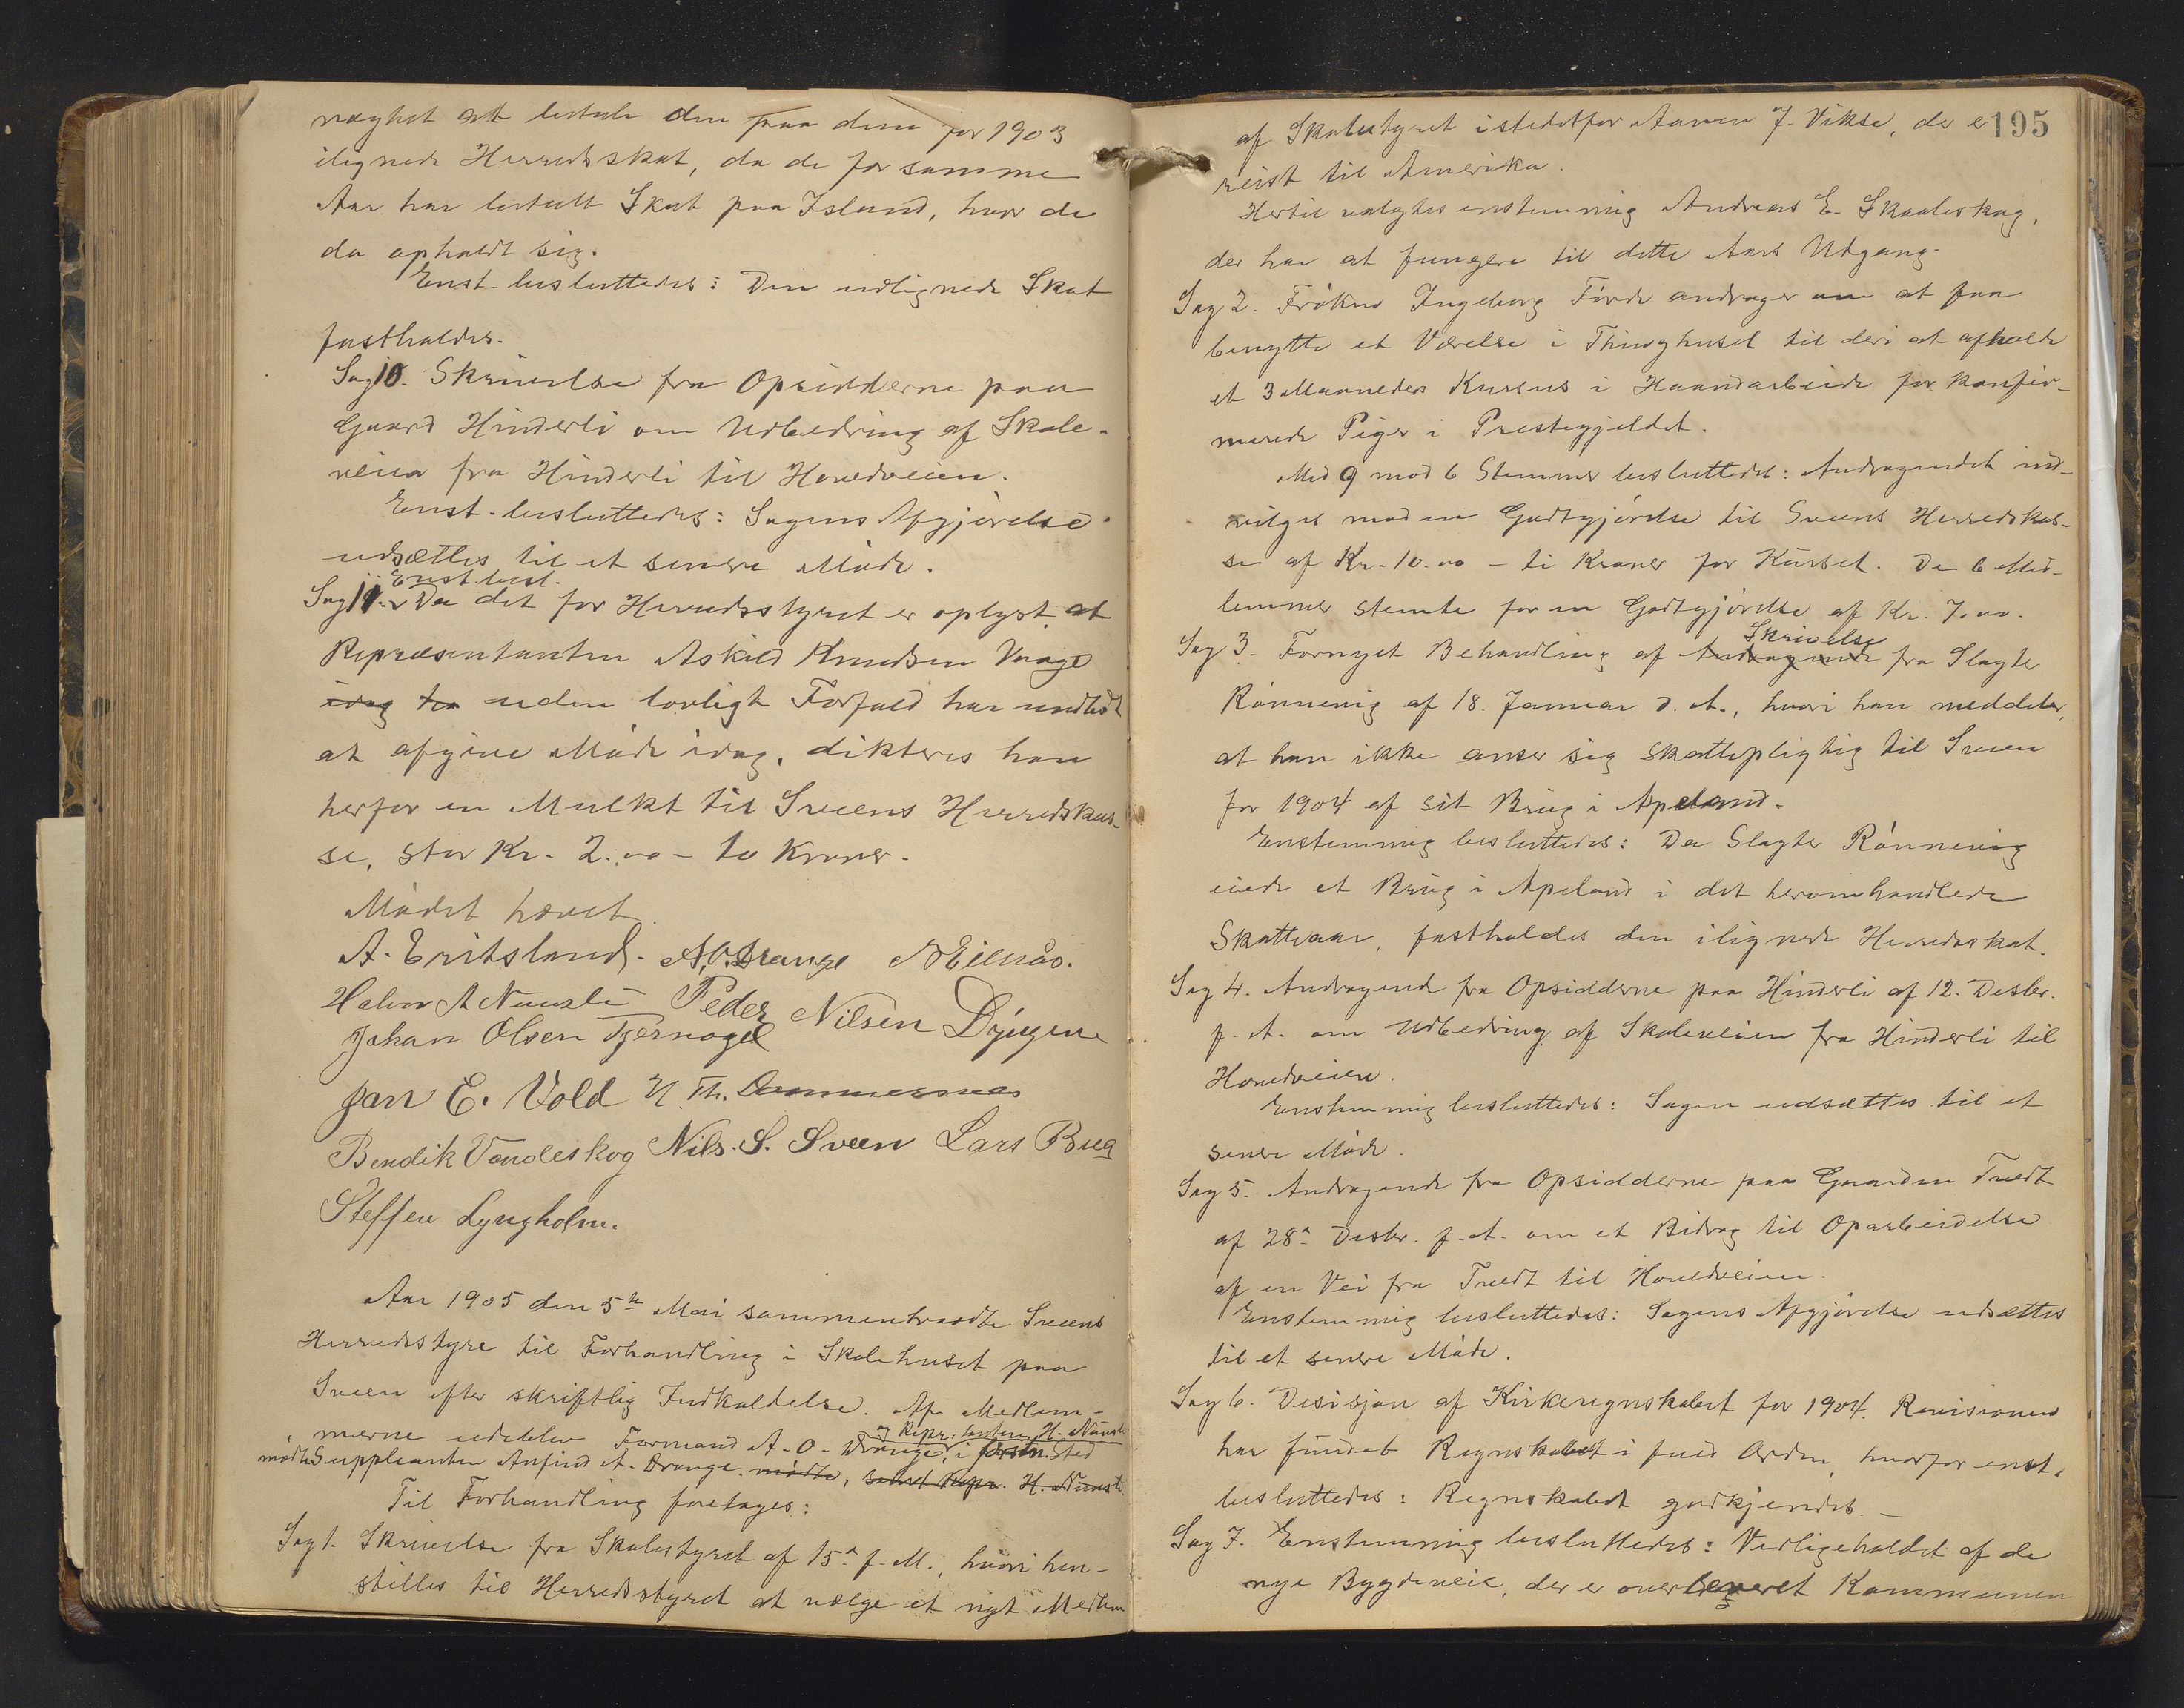 nægtet at betale den paa dem for 1903
ilignede Herredsskat, da de for samme
Aar har betalt Skat paa Island, hvor de
da opholdt sig.
Enst. besluttedes: Den udlignede Skat
fastholdes.
Sag 10. Skrivelse fra Opsidderne paa
Gaard Hinderli om Udbedring af Skole-
veien fra Hinderli til Hovedveien.
Enst. besluttedes: Sagens Afgjørelse
udsættes til et senere Møde.
Enst. besl.
Sag 11. Da det for Herredsstyret er oplyst at
Repræsentanten Askild Knudsen Vaage
idag har uden lovligt Forfald har undladt
at afgive Møde idag, dikteres han
herfor en Mulkt til Sveens Herredskas-
se, stor Kr. 2.00 - to Kroner.
Mødet hævet.
A. Eritsland. A. O. Drange N Eilsås.
Halvor A Nernsli Peder Nilsen Dÿngen
Johan Olsen Tjernagel
Jan E. Vold N. Th.
Bendik Vandeskog Nils. S. Sveen Lars Bua
Steffen Lyngholm.
Aar 1905 den 5te Mai sammentraadte Sveens
Herredsstyre til Forhandling i Skolehuset paa
Sveen efter skriftlig Indkaldelse. Af Medlem-
og Repr. tanten H.
merne udeblev Formand A. O. Drange, i Sted
mødte Suppleanten Anfind A. Drange. mødte, samt Repr. H.
Til Forhandling foretages:
Sag 1. Skrivelse fra Skolestyret af 15de f. M., hvori hen-
stilles til Herredsstyret at vælge et nyt Medlem
195
af Skolestyret istedetfor Aamen J. Vikse, der er
reist til Amerika.
Hertil valgtes enstemmig Andreas E. Skaaleskog,
der har at fungere til dette Aars Udgang.
Sag 2. Frøken Ingeborg Førde andrager om at faa
benytte et Værelse i Thinghuset til deri at afholde
et 3 Maaneders Kursus i Haandarbeide for konfir-
merede Piger i Prestegjeldet.
Med 9 mod 6 Stemmer besluttedes: Andragendet ind-
vilges mod en Godtgjørelse til Sveens Herredskas-
se af Kr. 10.00 - ti Kroner for Kurset. De 6 Med-
lemmer stemte for en Godtgjørelse af Kr. 7.00.
Skrivelse
Sag 3. Fornyet Behandling af Andragende fra Slagter
Rønnevig af 18. Januar d. A., hvori han meddeler,
at han ikke anser sig skattepligtig til Sveen
for 1904 af sit Brug i Apeland.
Enstemmig besluttedes: Da Slagter Rønnevig
eiede et Brug i Apeland i det heromhandlede
Skatteaar, fastholdes den ilignede Herredsskat.
Sag 4. Andragende fra Opsidderne paa Hinderli af 12. Desbr.
f. A. om Udbedring af Skoleveien fra Hinderli til
Hovedveien.
Enstemmig besluttedes: Sagen udsættes til et
senere Møde.
Sag 5. Andragende fra Opsidderne paa Gaarden Tvedt
af 28de Desbr. f. A. om et Bidrag til Oparbeidelse
af en Vei fra Tvedt til Hovedveien.
Enstemmig besluttedes: Sagens Afgjørelse udsættes
til et senere Møde.
Sag 6. Desisjon af Kirkeregnskabet for 1904. Revisionen
har fundet Regnskabet i fuld Orden, hvorfor enst.
besluttedes: Regnskabet godkjendes. -
Sag 7. Enstemmig besluttedes: Vedligeholdet af de
nye Bygdeveie, der er overleveret Kommunen